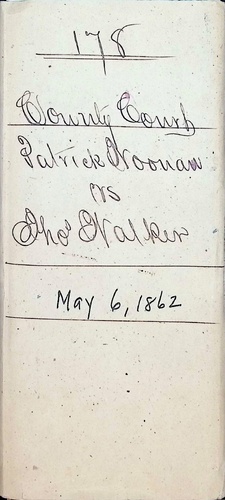 178
County Court
Patrick Noonan
vs
Thos Walker
May 6, 1862